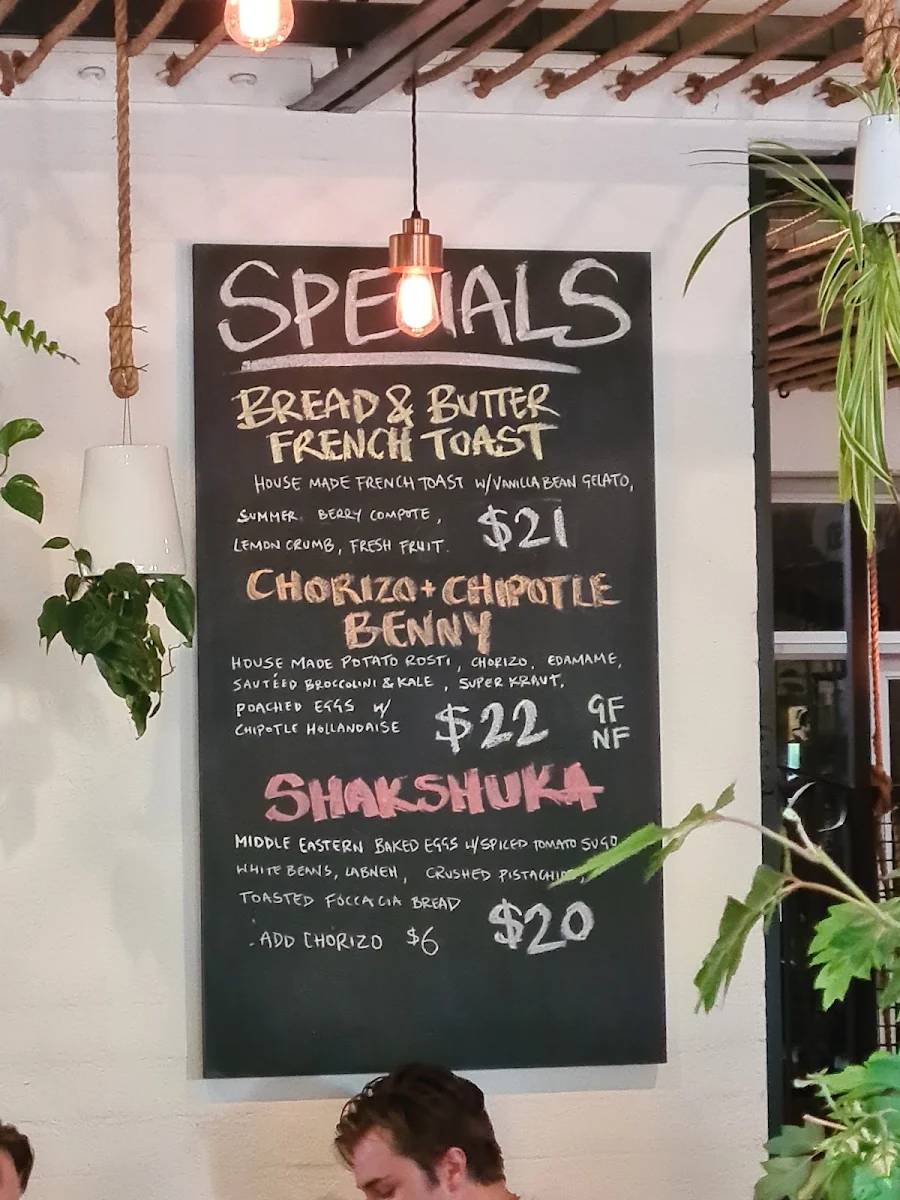 SPECIALS
BREAD & BUTTER
FRENCH TOAST
HOUSE MADE FRENCH TOAST W/VANILLA BEAN GELATO,
SUMMER BERRY COMPOTE, $21
LEMON CRUMB, FRESH FRUIT.
CHORIZO + CHIPOTLE
BENNY
HOUSE MADE POTATO ROSTI, CHORIZO, EDAMAME,
SAUTÉED BROCCOLINI & KALE, SUPER KRAUT,
POACHED EGGS W/ $22 GF
CHIPOTLE HOLLANDAISE NF
SHAKSHUKA
MIDDLE EASTERN BAKED EGGS W/SPICED TOMATO SUGO
WHITE BEANS, LABNEH, CRUSHED PISTACHIOS,
TOASTED FOCCACIA BREAD $20
. ADD CHORIZO $6